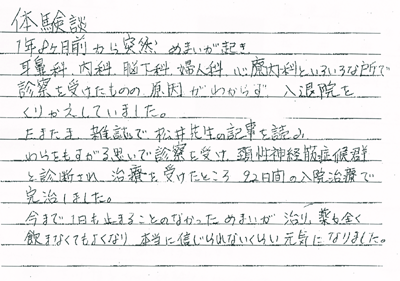 体験談
1年8ヶ月前から突然、めまいが起き
耳鼻科、内科、脳外科、婦人科、心療内科といろいろな所で
診察を受けたものの原因がわからず、入退院を
くりかえしていました。
たまたま、雑誌で松井先生の記事を読み
わらをもすがる思いで診察を受け、頚性神経筋症候群
と診断され、治療を受けたところ92日間の入院治療で
完治しました。
今まで1日も止まることのなかっためまいが治り、薬も全く
飲まなくてもよくなり本当に信じられないくらい元気になりました。